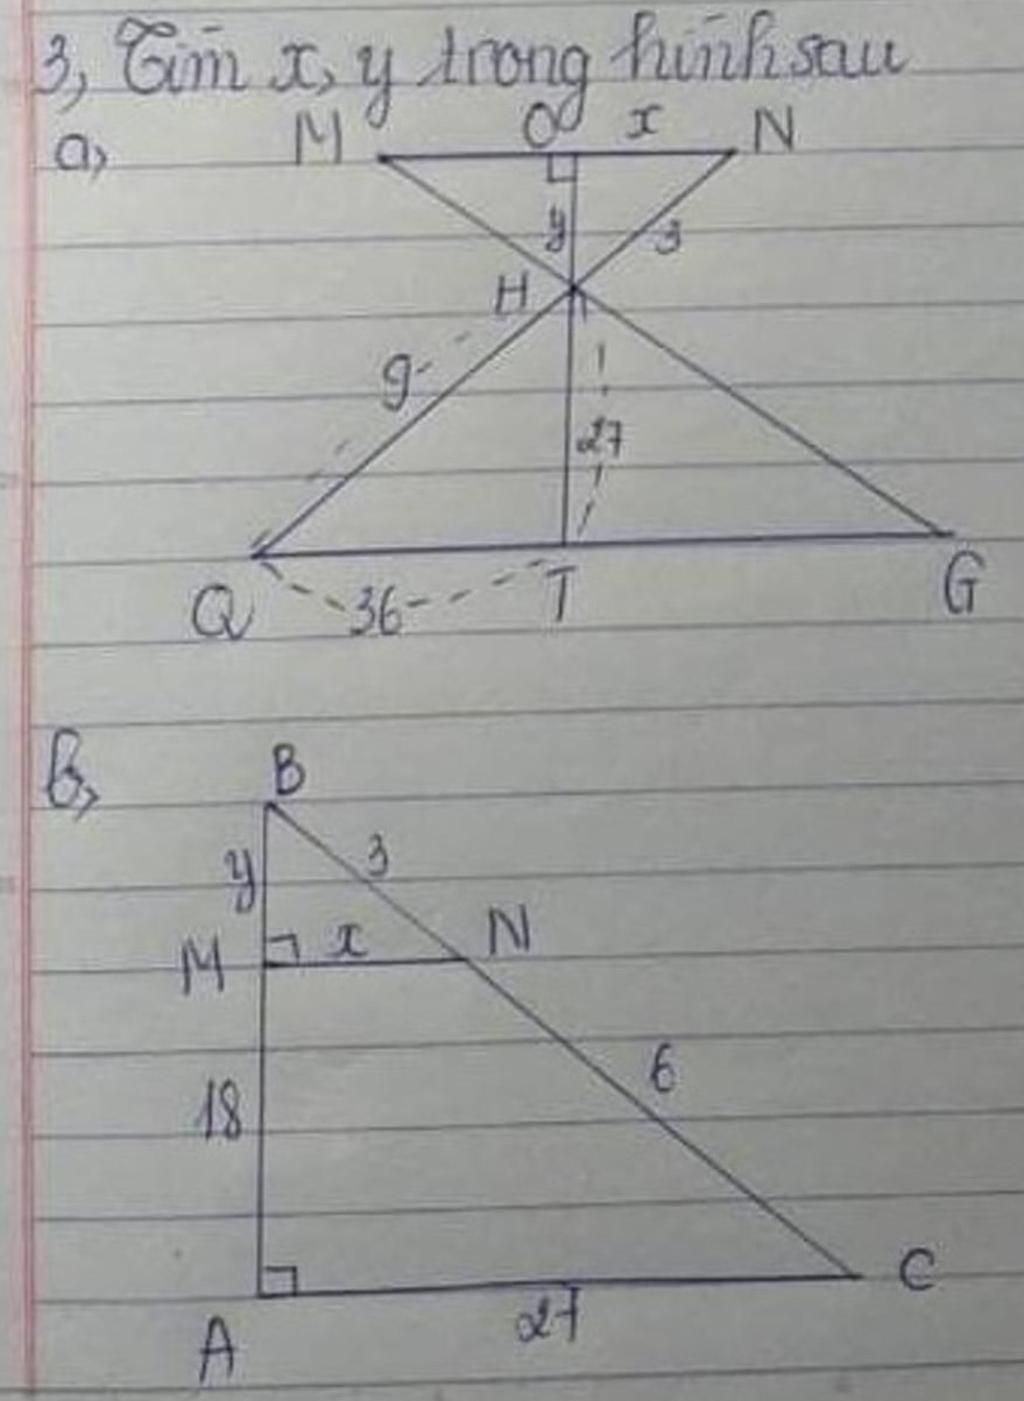 3, Tìm x, y trong hình sau
a,
M O x N
y 3
H
9
27
Q 36 T G
b,
B
y 3
M x N
18 6
A 27 C